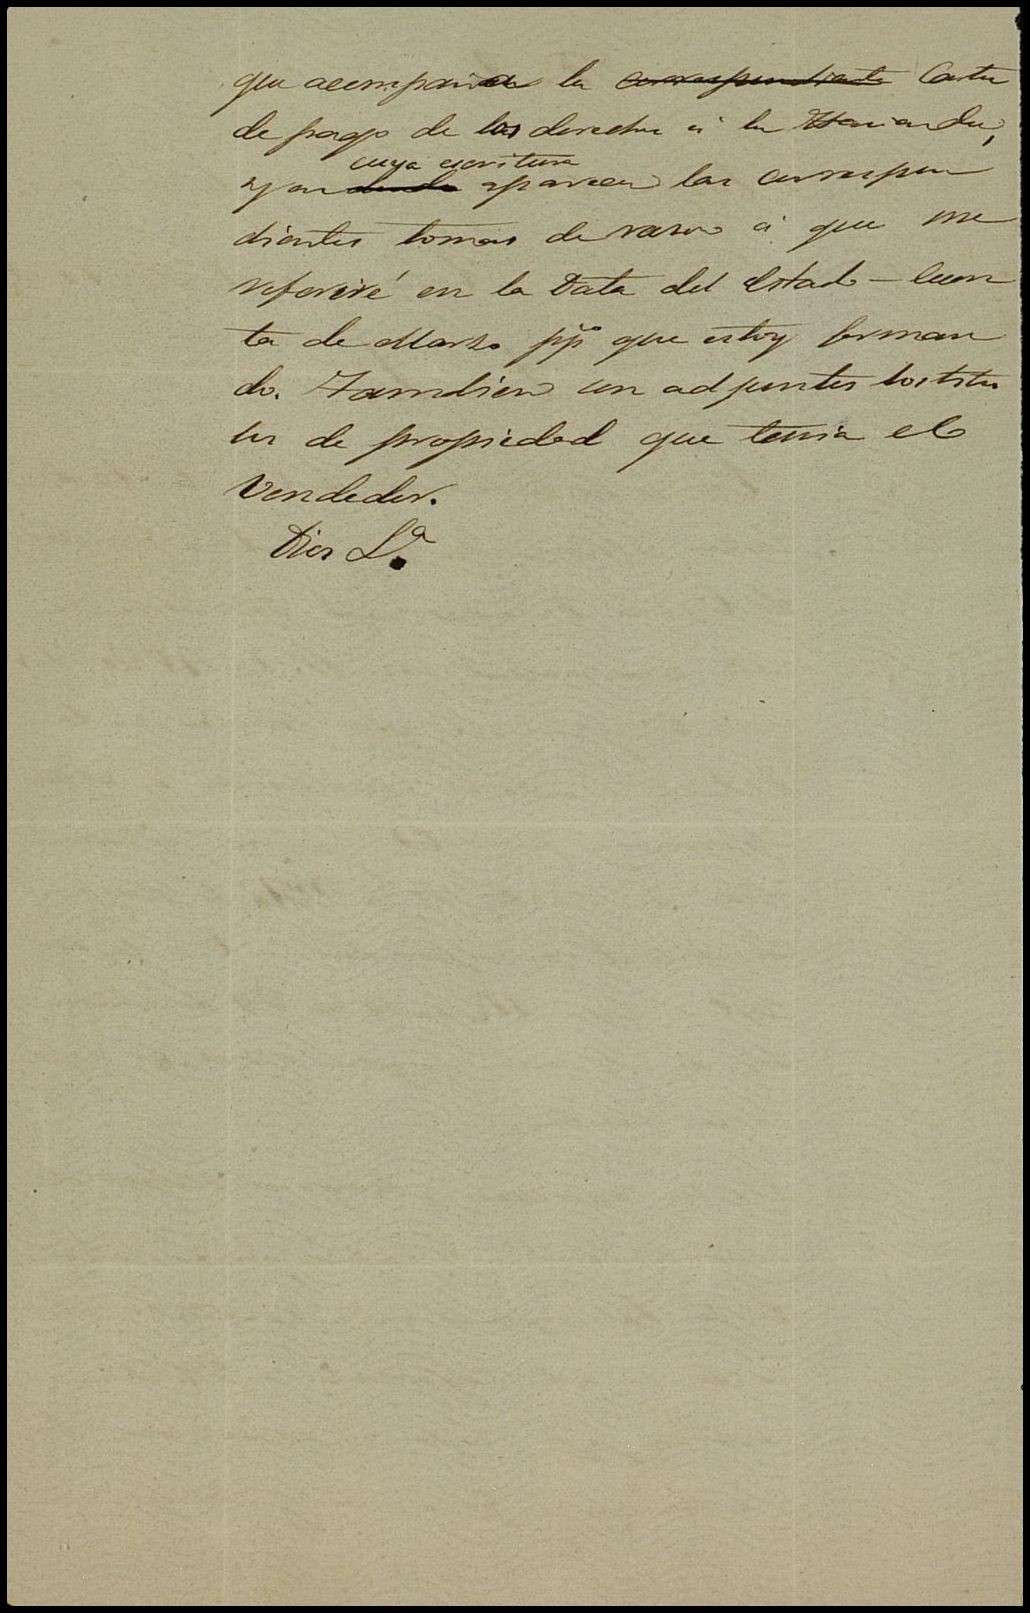 que acompaña la correspondiente Carta
de pago de los derechos á la Hacienda,
cuya escritura
y en donde aparecen las correspon
dientes tomas de razon á que me
referiré en la Data del Estado - Cuen
ta de Marzo ppº que estoy forman
do. Tambien son adjuntos los títu
los de propiedad que tenia el
Vendedor.
Dios &ª